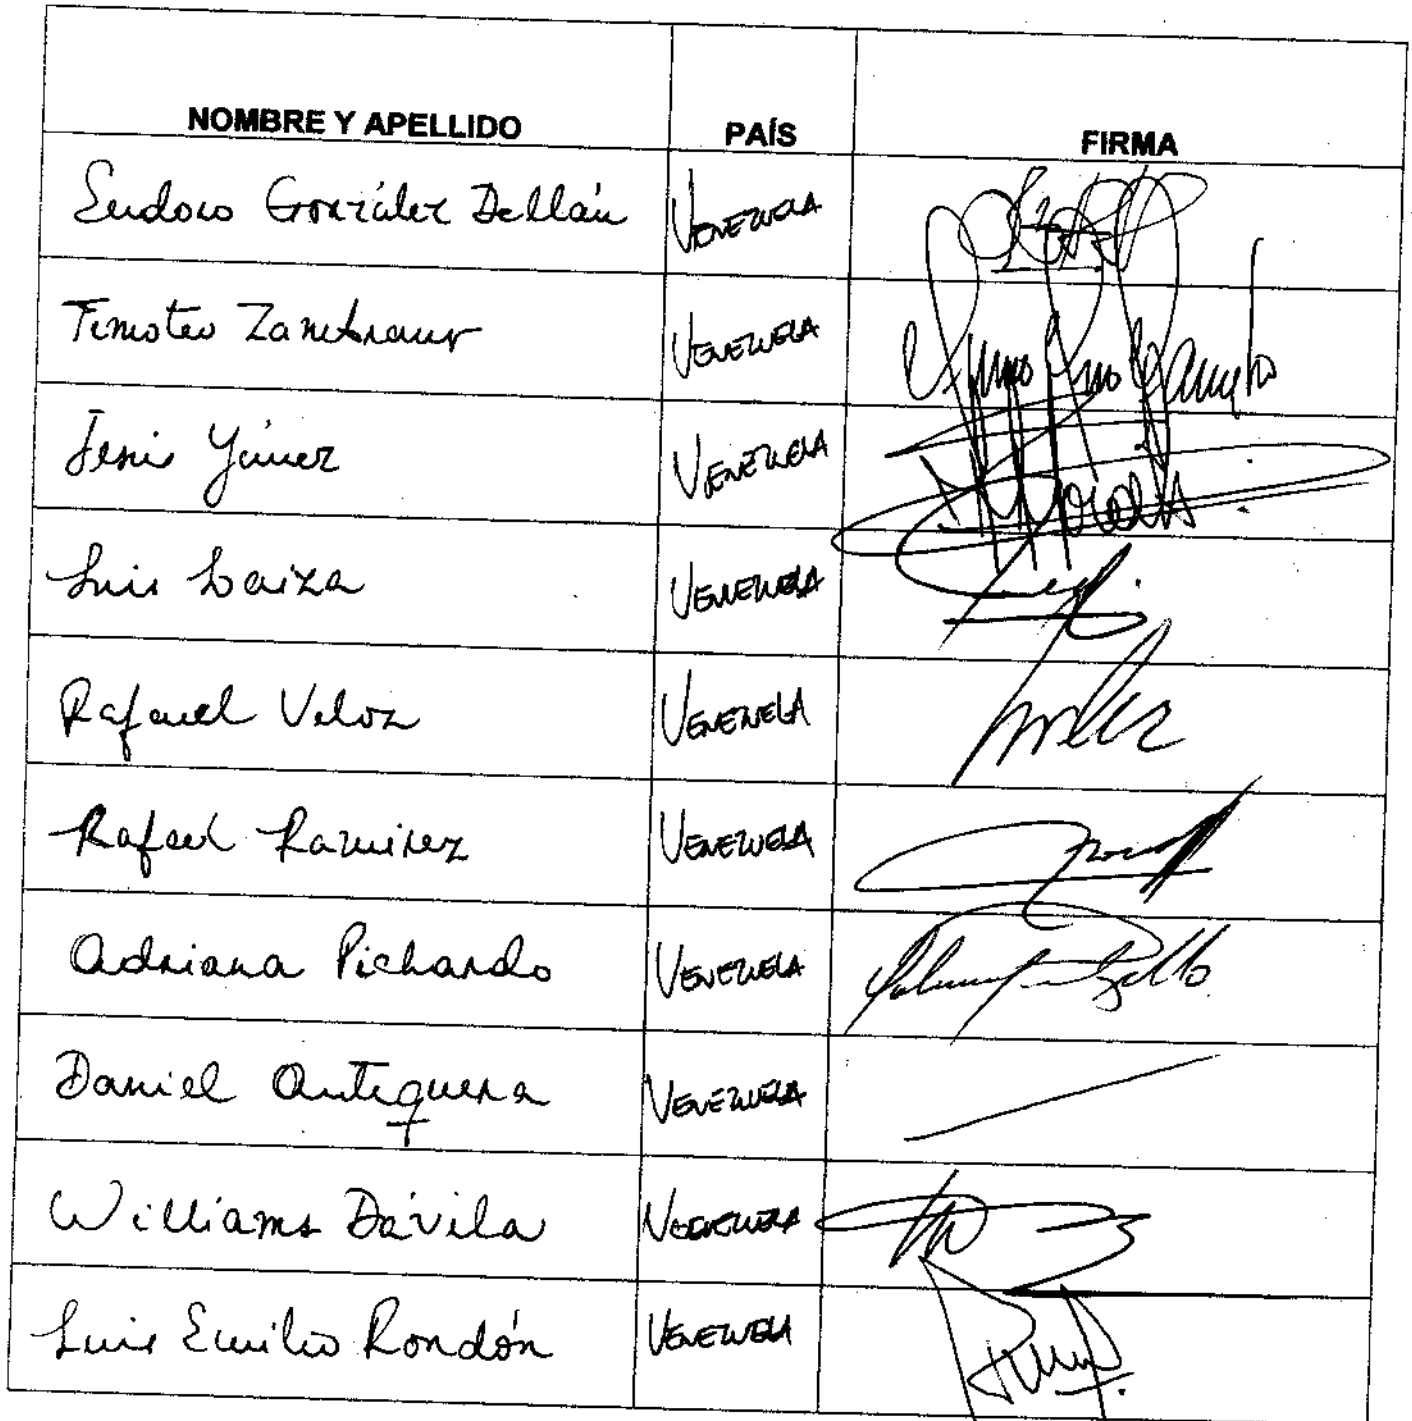 NOMBRE Y APELLIDO PAÍS FIRMA
Eudoro González Dellán VENEZUELA
Timoteo Zambrano VENEZUELA
Yánez VENEZUELA
Luis Loaiza VENEZUELA
Rafael Veloz VENEZUELA
Rafael Ramirez VENEZUELA
Adriana Pichardo VENEZUELA
Daniel Antequera VENEZUELA
Williams Dávila VENEZUELA
Luis Emilio Rondón VENEZUELA